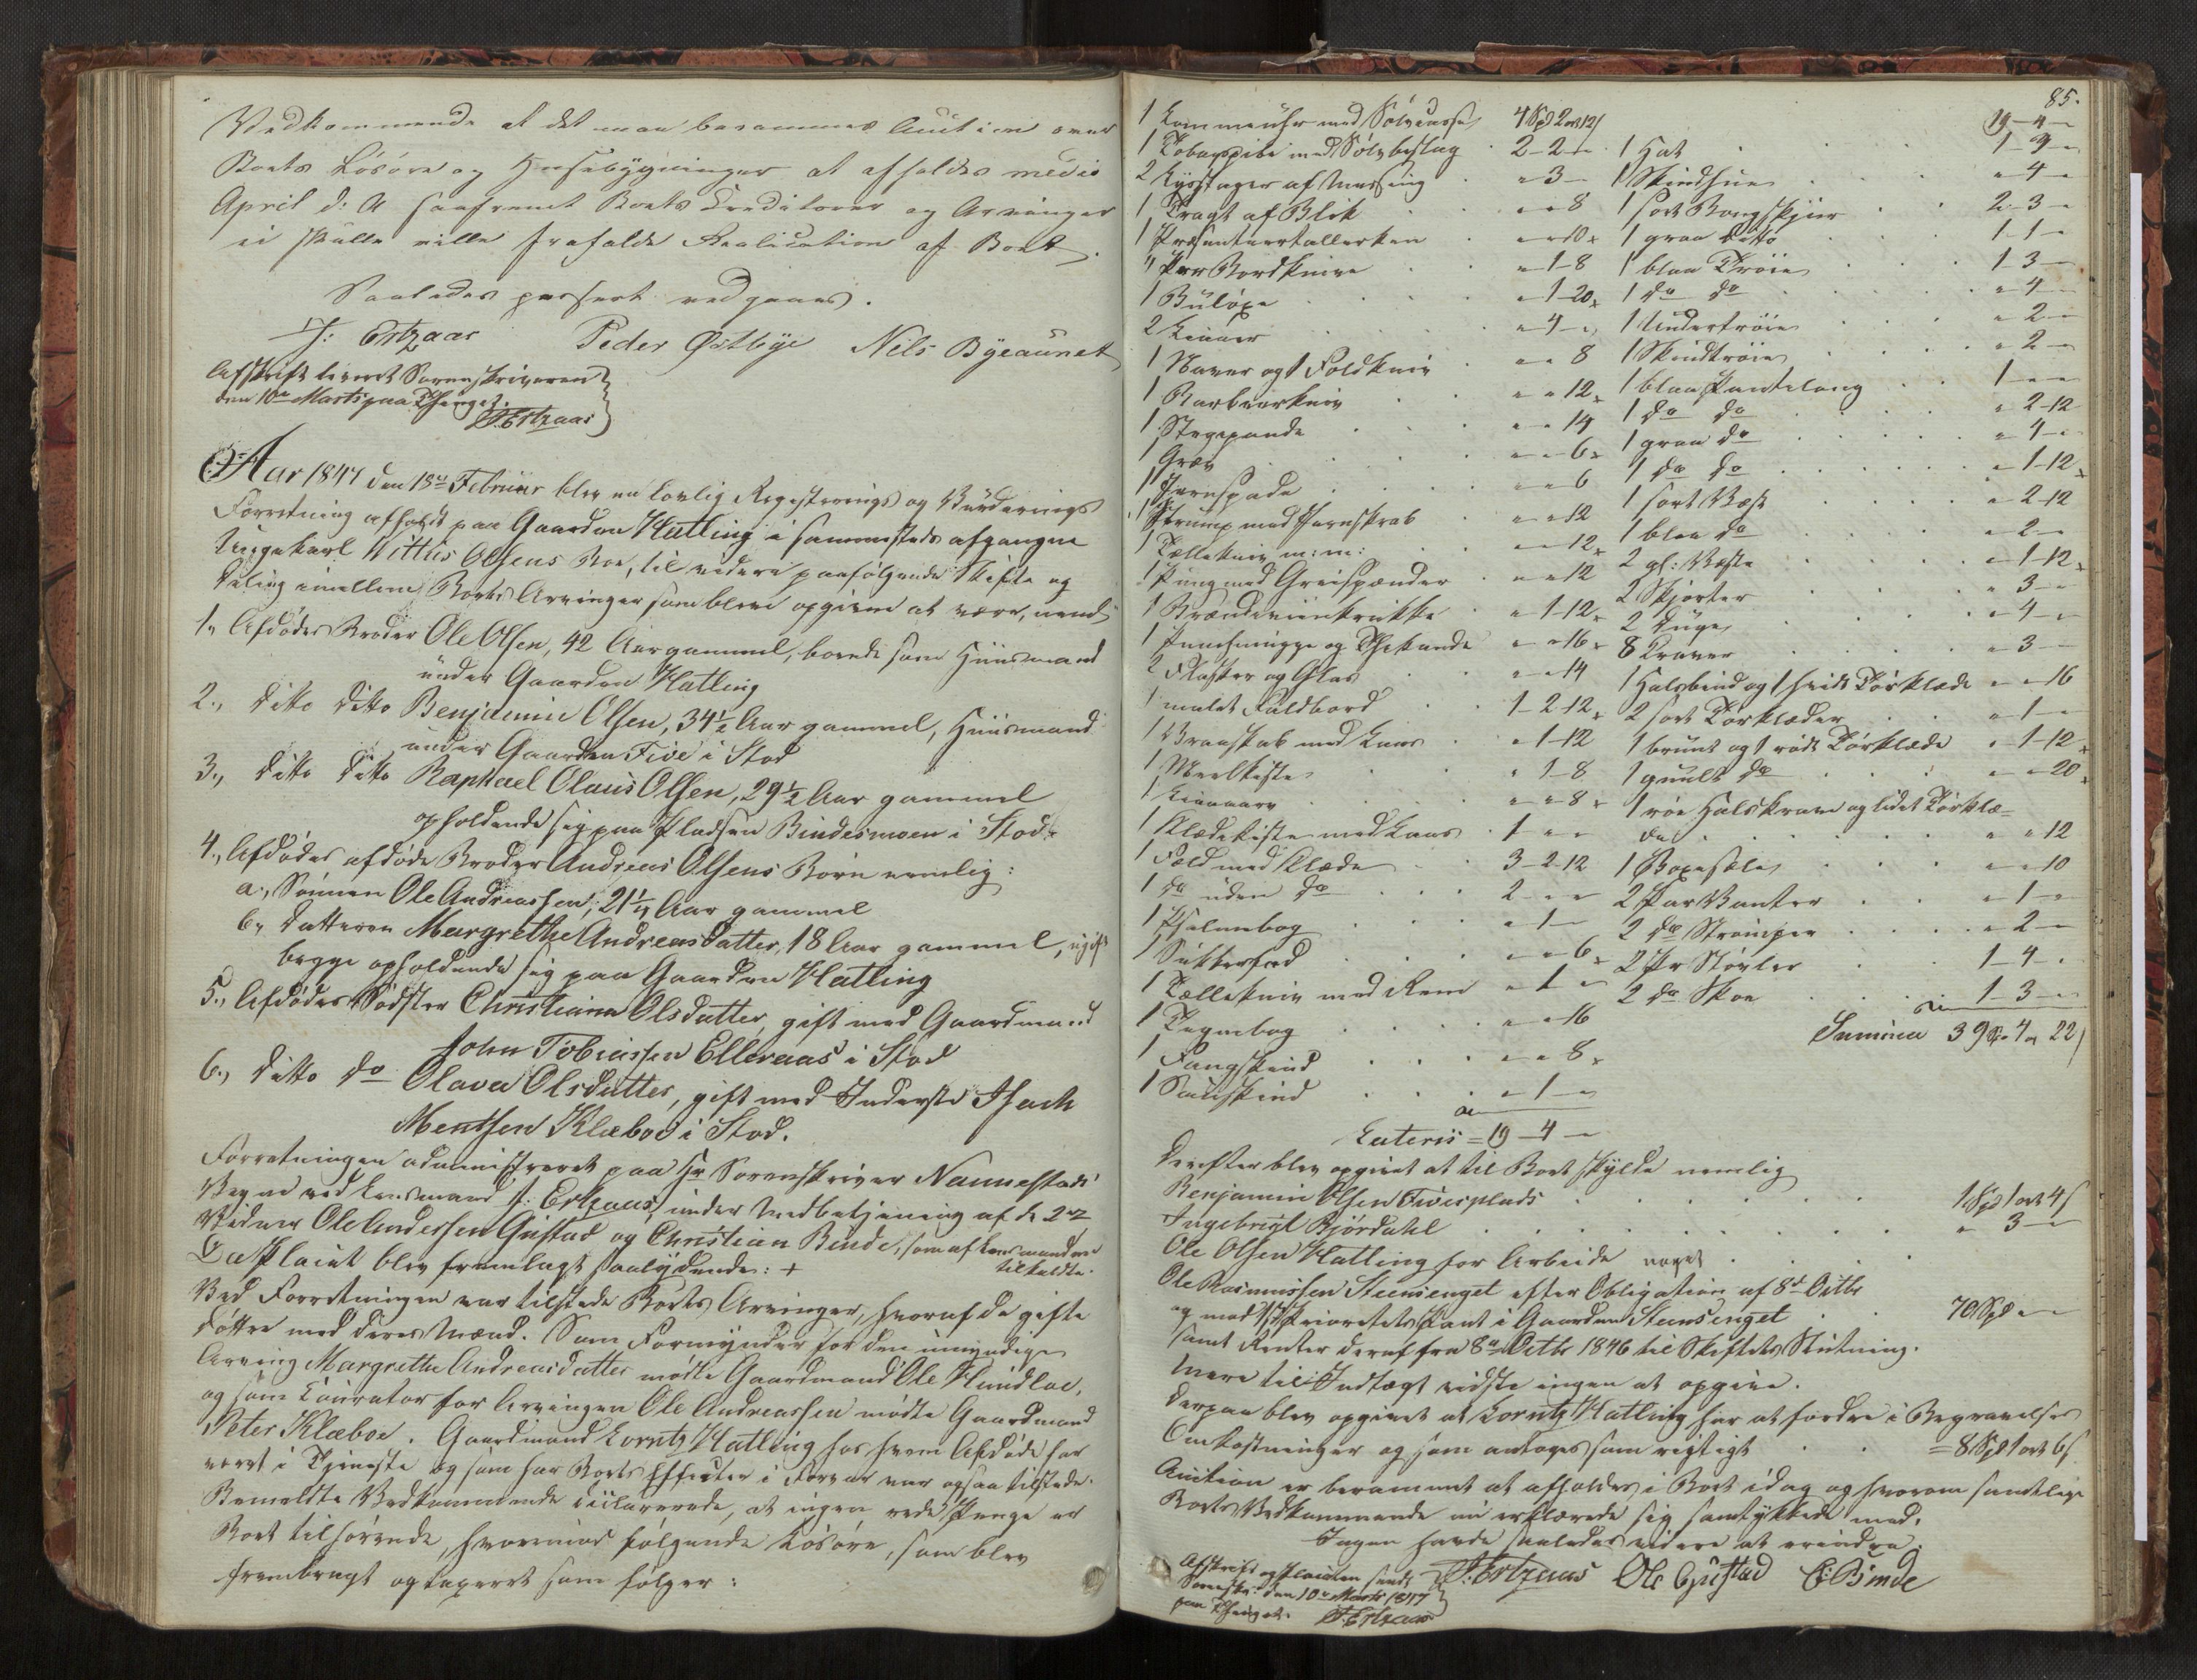 Vedkommende at det maa berammes Auction over
Boets Løsøre og Huusebygninger at afholdes medio
April d: A saafremt Boets Creditorer og Arvinger
ei skulle ville frafalde Realisation af Boet.
Saaledes passeret vedgaaes.
J: Ertzaas Peder Østbye Nils Byeaunet
Afskrift leveret Sorenskriveren
den 10de Marts paa Thinget.
J. Ertzaas
Aar 1847 den 13de Februar blev en lovlig Registrerings og Vurderings
Forretning afholdt paa Gaarden Hatling i sammesteds afgangne
Ungekarl Wittus Olsens Boe, til videre paafølgende Skifte og
Deling imellem Boets Arvinger som bleve opgivne at være, nemlig
1., Afdødes Broder Ole Olsen, 42 Aar gammel, boende som Huusmand
under Gaarden Hatling
2., ditto ditto Benjamin Olsen, 34½ Aar gammel, Huusmand
under Gaarden Five i Stod
3., ditto ditto Raphael Olaus Olsen, 29½ Aar gammel
opholdende sig paa Pladsen Bindesmoen i Stod.
4., Afdødes afdøde Broder Andreas Olsens Børn nemlig:
a., Sønnen Ole Andreassen, 21¼ Aar gammel
b., Datteren Margrethe Andreasdatter, 18 Aar gammel, ugift
begge opholdende sig paa Gaarden Hatling
5., Afdødes Sødster Christiana Olsdatter, gift med Gaardmand
John Tobiassen Elleraas i Stod
6., ditto do Olava Olsdatter, gift med Inderste Isach
Mentsen Klæboe i Stod.
Forretningen administreret paa Hr Sorenskriver Nannestads
Vegne ved Lensmand J. Ertzaas, under Medbetjening af de 2de
Vidner Ole Andersen Gustad og Christian Binde, som af Lensmanden
tilkaldte.
Da Placat blev fremlagt saalydende: +
Ved Forretningen var tilstede Boets Arvinger, hvoraf de gifte
Døttre med deres Mænd. Som Formynder for den umyndige
Arving Margrethe Andreasdatter mødte Gaardmand Ole Hundloe,
og som Curator for Arvingen Ole Andreassen mødte Gaardmand
Peter Klæboe. Gaardmand Lorntz Hatling hos hvem Afdøde har
været i Tjeneste og som har Boets Effecter i Forvar var ogsaa tilstede.
Bemeldte Vedkommende declarerede, at ingen rede Penge er
Boet tilhørende, hvorimod følgende Løsøre, som blev
frembragt og taxeret som følger:
85.
1 Lommeuhr med Sølvcasse 4 Spd 2 ort 12 s
1 Tobagspibe med Sølvbeslag 2-2-"
2 Lysstager af Messing "-3-"
1 Tragt af Blik "-"-8
1 Præsenteertallerken "-"-10
4 Par Bordknive "-1-8
1 Buløxe "-1-20
2 Liaaer "-4-"
1 Naver og 1 Foldkniv "-"-8
1 Barbeerkniv "-"-12
1 Stegepande "-"-14
1 Græv "-"-6
1 Jernspade "-"-6
1 Strump med Jernskrab "-"-12
1 Tællekniv m: m: "-"-12
1 Pung med Greispænder "-"-12
1 Brændeviinskrukke "-1-12
1 Punchmugge og Thekande "-"-16
2 Flasker og Glas "-"-14
1 malet Foldbord 1-2-12
1 Vraaskab med Laas "-1-12
1 Meelkiste "-1-8
1 "-"-8
1 Klædekiste med Laas 1-"-"
1 Feld med Klæde 3-2-12
1 do uden do 2-"-"
1 Psalmebog "-1-"
1 Sukkerfad "-"-6
1 Tællekniv med Rem "-1-"
1 Tegnebog "-"-16
1 Fangskind "-"-8
1 Saueskind "-1-"
Lateris = 19-4-"
19-4-"
1 Hat 1-3-"
1 Skindhue "-4-"
1 sort Vongskjier 2-3-"
1 graa ditto 1-1-"
1 blaa Trøie 1-3-"
1 do do "-4-"
1 Undertrøie "-2-"
1 Skindtrøie "-2-"
1 blaa Pantelong 1-"-"
1 do do "-2-12
1 graa do "-4-"
1 do do "-1-12
1 sort Væst "-2-12
1 blaa do "-2-"
2 gl: Væste "-1-12
2 Skjorter "-3-"
2 Duge "-4-"
8 Kraver "-3-"
1 Halsbind og 1 hvidt Tørklæde "-"-16
2 sort Tørklæder "-1-"
1 brunt og 1 rødt Tørklæde "-1-12
1 guult do "-"-20
1 røe Halskrave og lidet Tørklæ-
de "-"-12
1 Boxesele "-"-10
2 Par Vanter "-1-"
2 do Strømper "-2-"
2 Pr Støvler 1-4-"
2 do Skoe 1-3-"
Summa 39 Spd 4 ort 22 s
Derefter blev opgivet at til Boet skylde nemlig
Benjamin Olsen Fivesplads 1 Spd 1 ort 4 s
Ingebrigt Bjørdahl "-3-"
Ole Olsen Hatling for Arbeide noget
Ole Rasmussen Steensenget efter Obligation af 8de Octbr
og med 1ste Prioritets Pant i Gaarden Steensenget 70 Spd "-"
samt Renter deraf fra 8de Octbr 1846 til Skiftets Slutning.
Mere til Indtægt vidste ingen at opgive.
Derpaa blev opgivet at Lorntz Hatling har at fordre i Begravelses
Omkostninger og som antoges som rigtigt = 8 Spd 1 ort 6 s
Auction er berammet at afholdes i Boet idag og hvorom samtlige
Boets Vedkommende nu erklærede sig samtykkede med.
Ingen havde saaledes videre at erindre.
J. Ertzaas Ole Gustad C: Binde
Afskrift af Placaten sendt
Sorenskr: den 10de Marts 1847
paa Thinget. J. Ertzaas